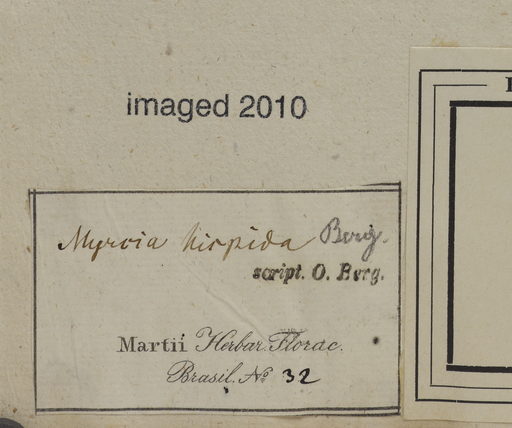 imaged 2010
Myrcia hispida Berg.
script. O. Berg.
Martii Herbar. Florae.
Brasil. No 32